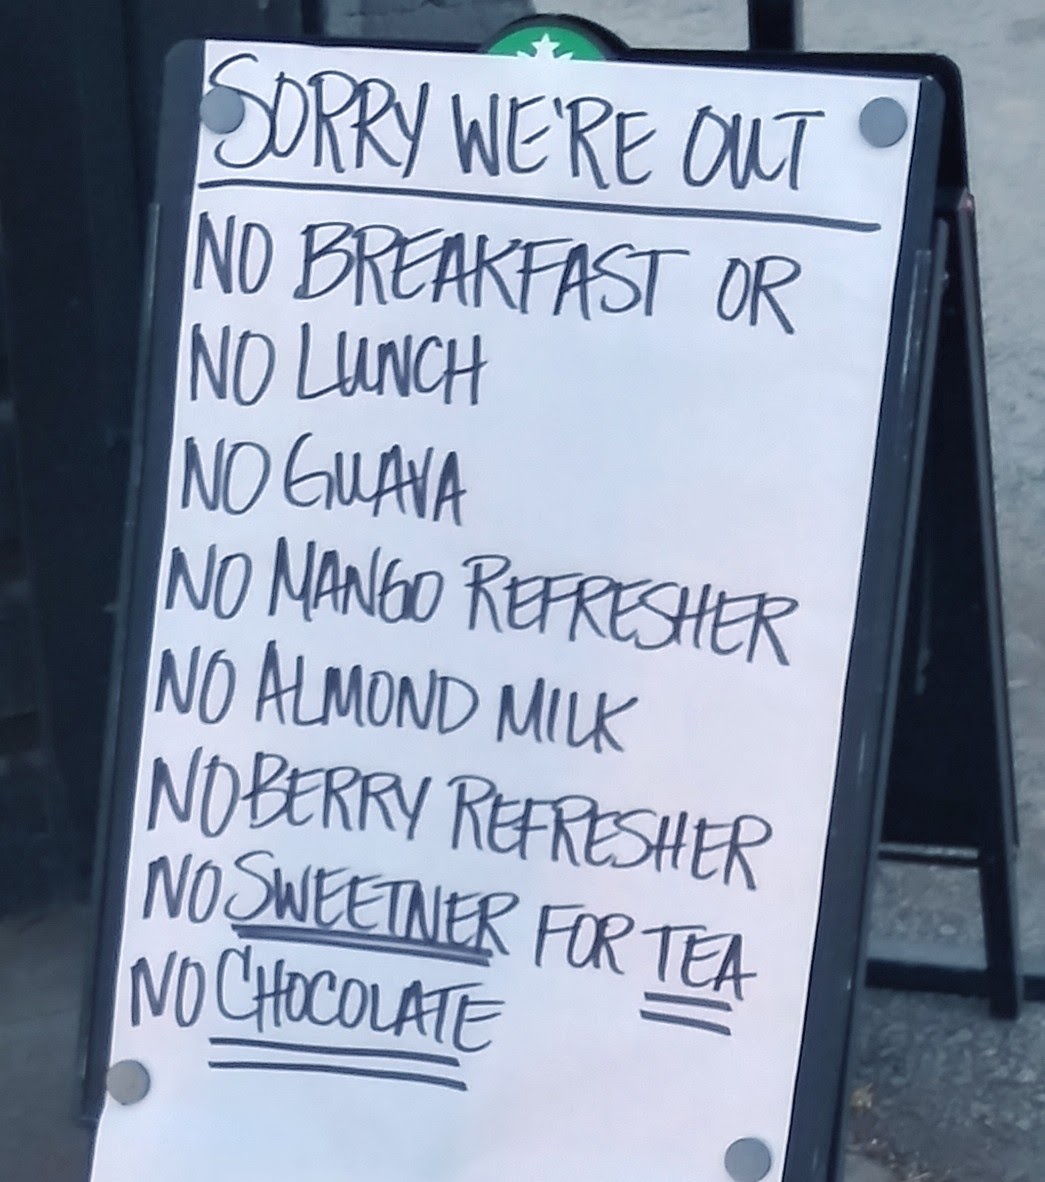 SORRY WE'RE OUT
NO BREAKFAST OR
NO LUNCH
NO GUAVA
NO MANGO REFRESHER
NO ALMOND MILK
NO BERRY REFRESHER
NO SWEETNER FOR TEA
NO CHOCOLATE